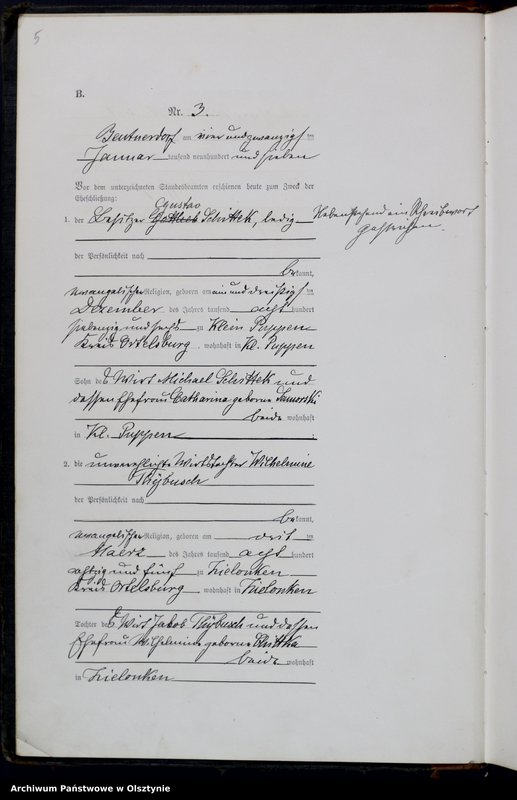 5
B.
Nr. 3.
Beutnerdorf am vier und zwanzigsten
Januar tausend neunhundert und sieben
Vor dem unterzeichneten Standesbeamten erschienen heute zum Zweck der
Eheschließung:
Gustav
1. der Besitzer Gottlieb Schittek, ledig Nebenstehend ein Schreibwort
gestrichen.
der Persönlichkeit nach
bekannt,
evangelischer Religion, geboren am ein und dreißigsten
Dezember des Jahres tausend acht hundert
siebenzig und sechs zu Klein Puppen
Kreis Ortelsburg, wohnhaft in Kl. Puppen
Sohn des Wirt Michael Schittek und
dessen Ehefrau Catharina geborne
beide wohnhaft
in Kl. Puppen
2. die unverehelichte Wirtstochter Wilhelmine
Thybusch
der Persönlichkeit nach
bekannt,
evangelischer Religion, geboren am
Maerz des Jahres tausend acht hundert
achtzig und fünf zu Zielonken
Kreis Ortelsburg, wohnhaft in Zielonken
Tochter des Wirt Jakob Thybusch und dessen
Ehefrau Wilhelmine geborne
beide wohnhaft
in Zielonken
Archiwum Państwowe w Olsztynie